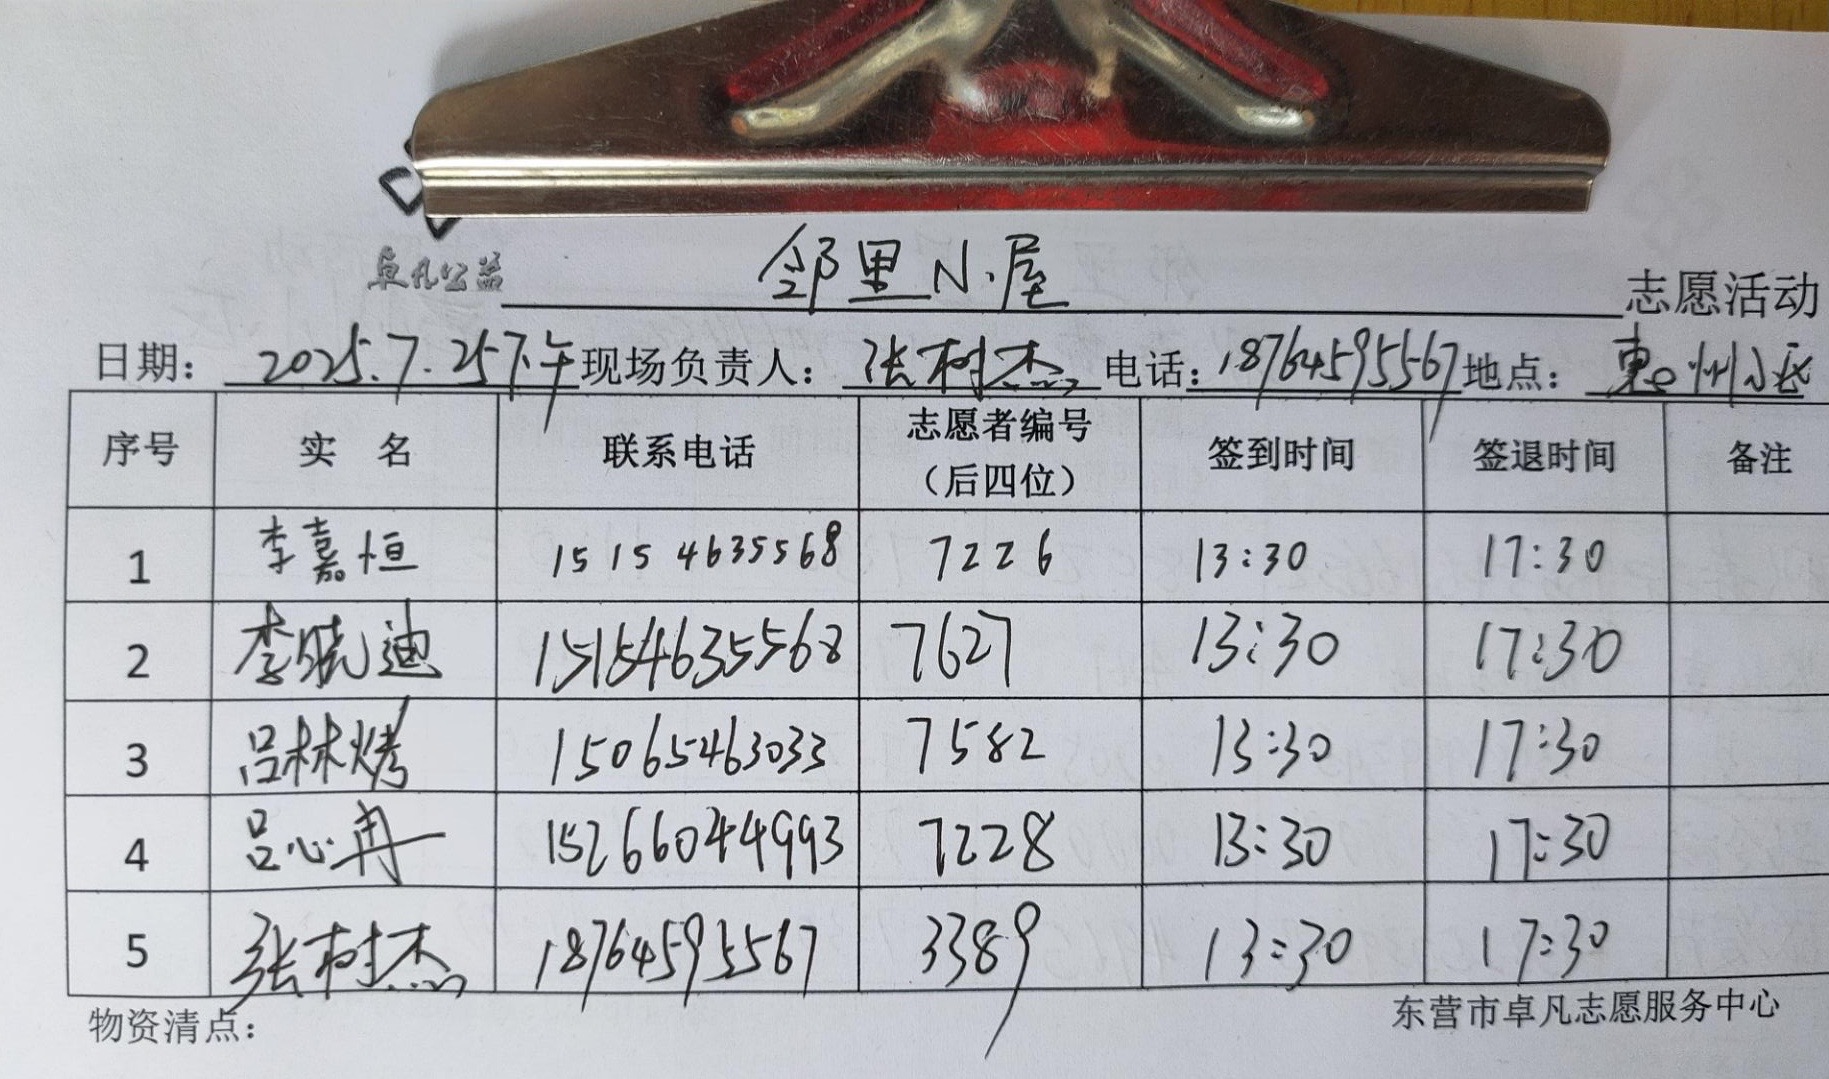 卓凡公益 邻里小屋 志愿活动
日期：2025.7.25下午 现场负责人：张树杰 电话：18764595567 地点：东州小区
序号 实 名 联系电话 志愿者编号（后四位） 签到时间 签退时间 备注
1 李嘉恒 15154635568 7226 13:30 17:30
2 李晓迪 15154635568 7627 13:30 17:30
3 吕林烤 15065463033 7582 13:30 17:30
4 吕心冉 15266044993 7228 13:30 17:30
5 张树杰 18764595567 3389 13:30 17:30
物资清点： 东营市卓凡志愿服务中心